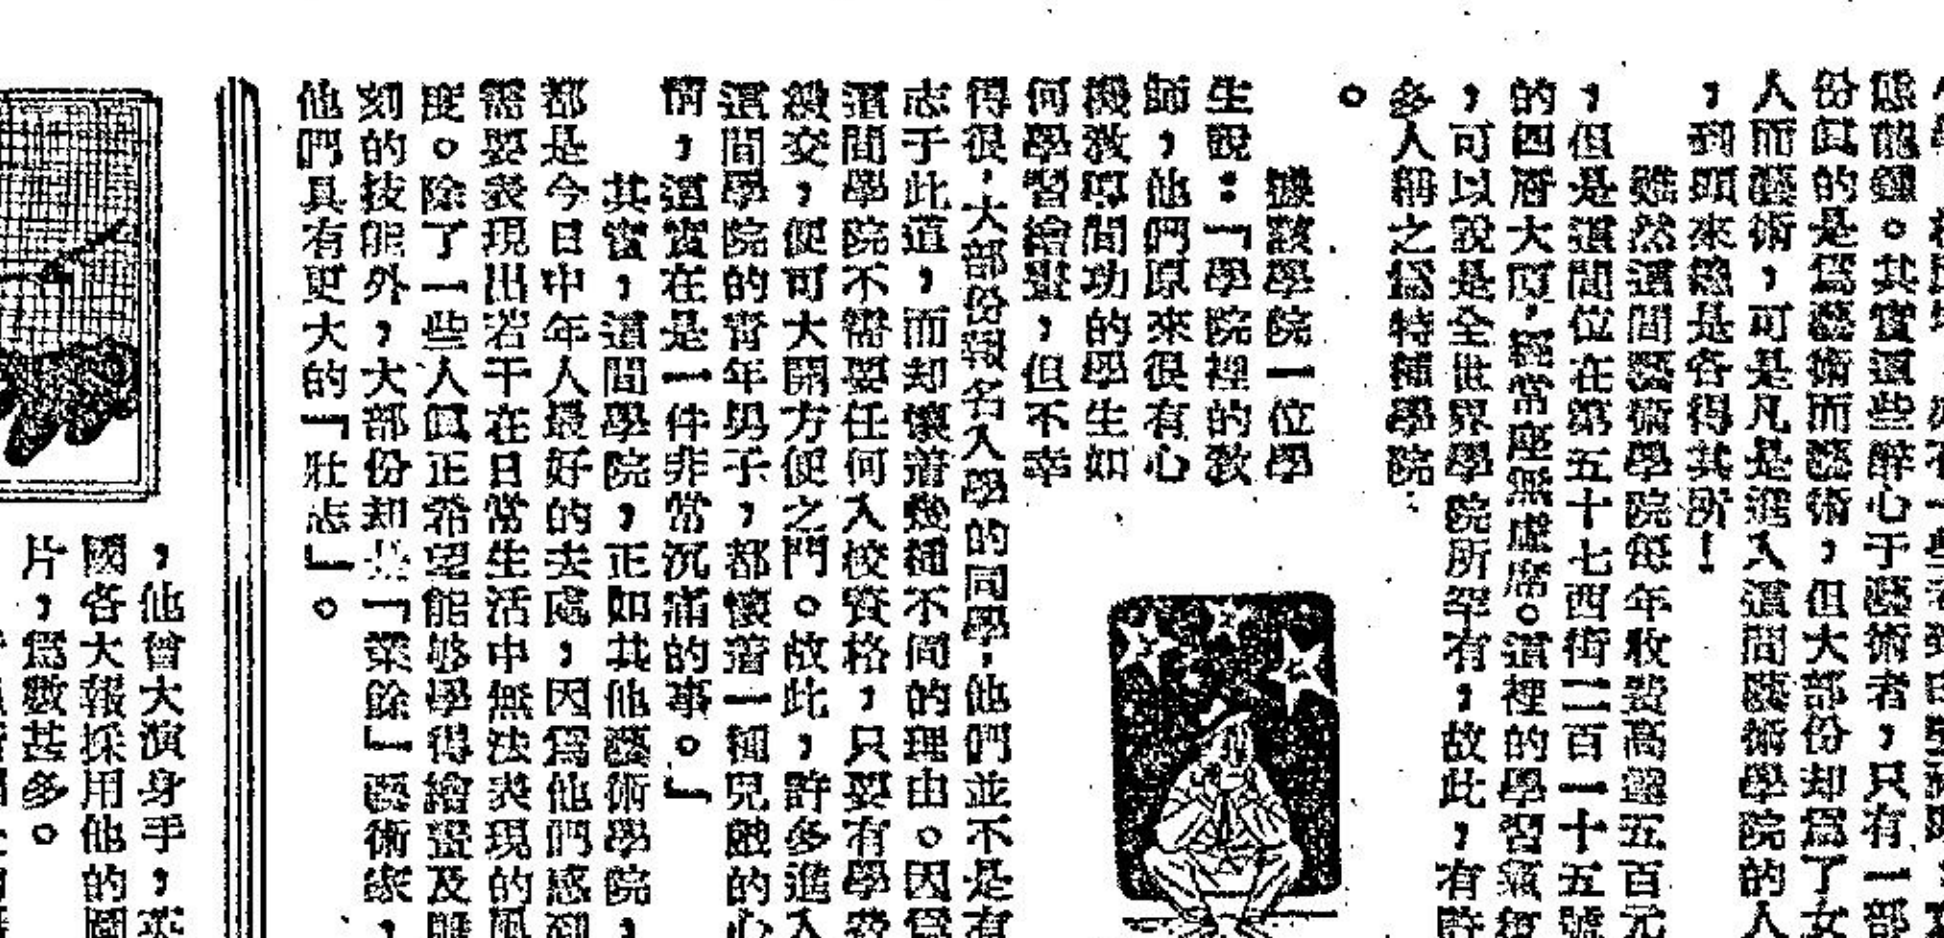 態龍鍾。其實這些醉心于藝術者，只有一部
份眞的是爲藝術而藝術，但大部份却爲了女
人而藝術，可是凡是進入這間藝術學院的人
，到頭來總是各得其所！
雖然這間藝術學院每年收費高達五百元
，但是這間位在第五十七西街二百一十五號
的四層大厦，經常座無虛席。這裡的學習氣
，可以說是全世界學院所罕有，故此，有許
多人稱之爲特種學院
。
據該學院一位學
生說：「學院裡的教
師，他們原來很有心
機教導間功的學生如
何學習繪畫，但不幸
得很，大部份報名入學的同學，他們並不是有
志于此道，而却懷着幾種不同的理由。因爲
這間學院不需要任何入校資格，只要有學費
繳交，便可大開方便之門。故此，許多進入
這間學院的青年男子，都懷着一種兒戲的心
情，這實在是一件非常沉痛的事。」
其實，這間學院，正如其他藝術學院，
都是今日中年人最好的去處，因爲他們感到
需要表現出若干在日常生活中無法表現的風
度。除了一些人眞正希望能够學得繪畫及雕
刻的技能外，大部份却是「業餘」藝術家，
他們具有更大的「壯志」。
，他曾大演身手，英
國各大報採用他的圖
片，爲數甚多。